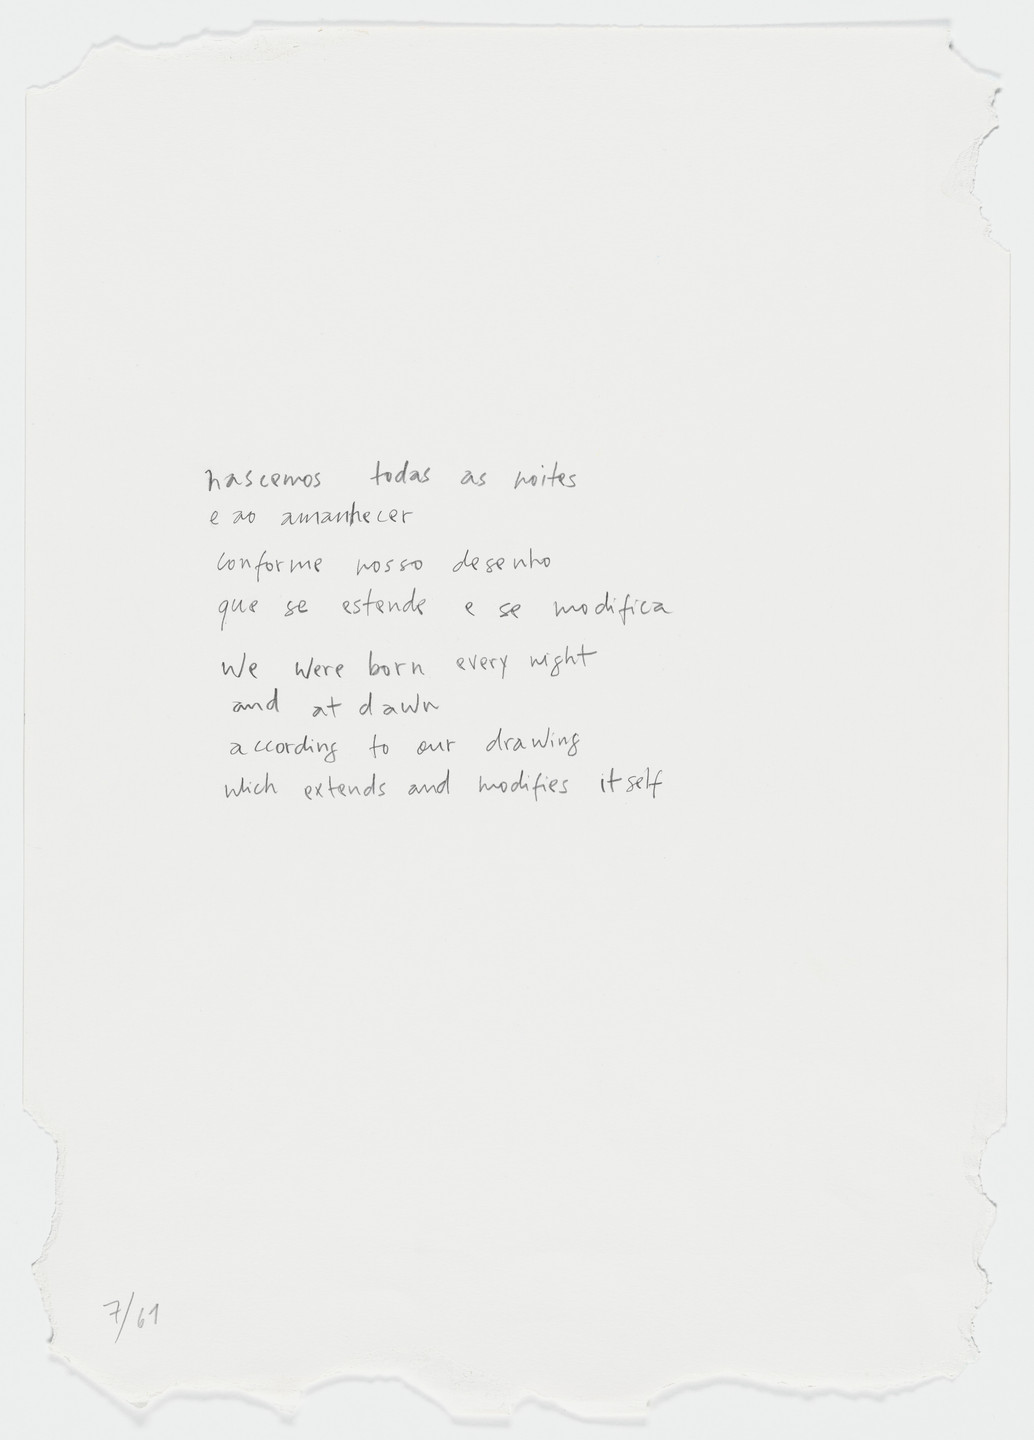 nascemos todas as noites
e ao amanhecer
conforme nosso desenho
que se estende e se modifica
We were born every night
and at dawn
according to our drawing
wich extends and modifies itself
7/61